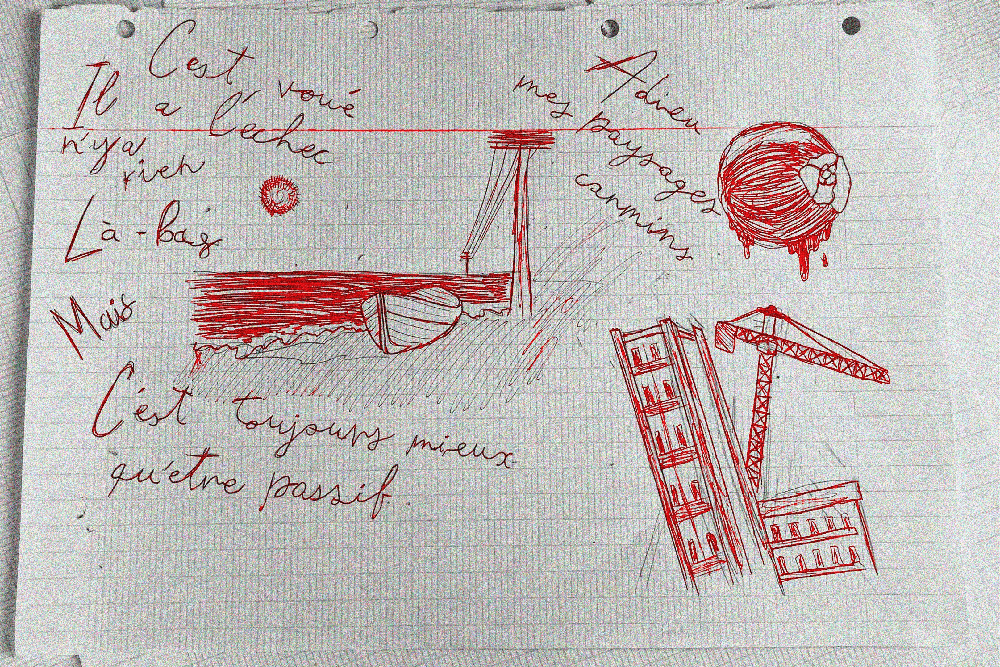 C'est voué
a l'échec
Il
n'y a
rien
Là-bas
Mais
C'est toujours mieux
qu'être passif
Adieu
mes paysages
carmins